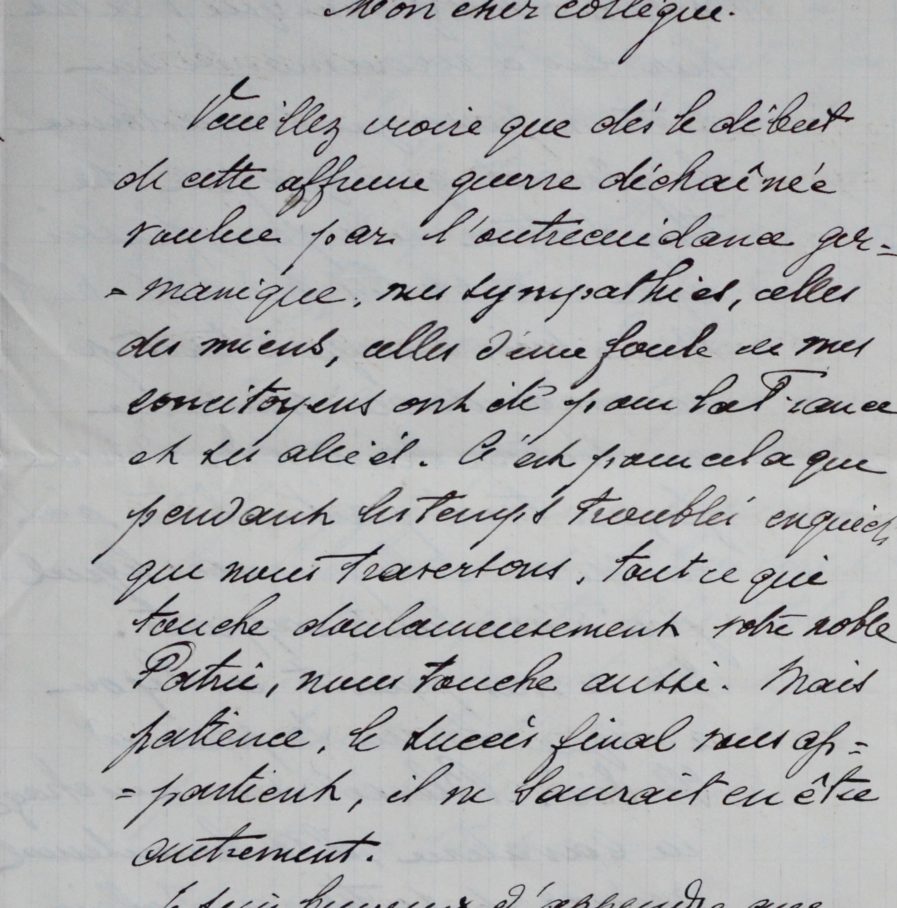 Mon cher collègue.
Veuillez croire que dès le début
de cette affreuse guerre déchaînée
voulue par l'outrecuidance ger-
-manique, mes sympathies, celles
des miens, celles d'une foule de mes
concitoyens ont été pour la France
et ses alliés. C'est pour cela que
pendant les temps troublés
que nous traversons, tout ce qui
touche douloureusement votre noble
Patrie, nous touche aussi. Mais
patience, le succès final vous ap=
=partient, il ne saurait en être
autrement.
Je suis heureux d'apprendre que